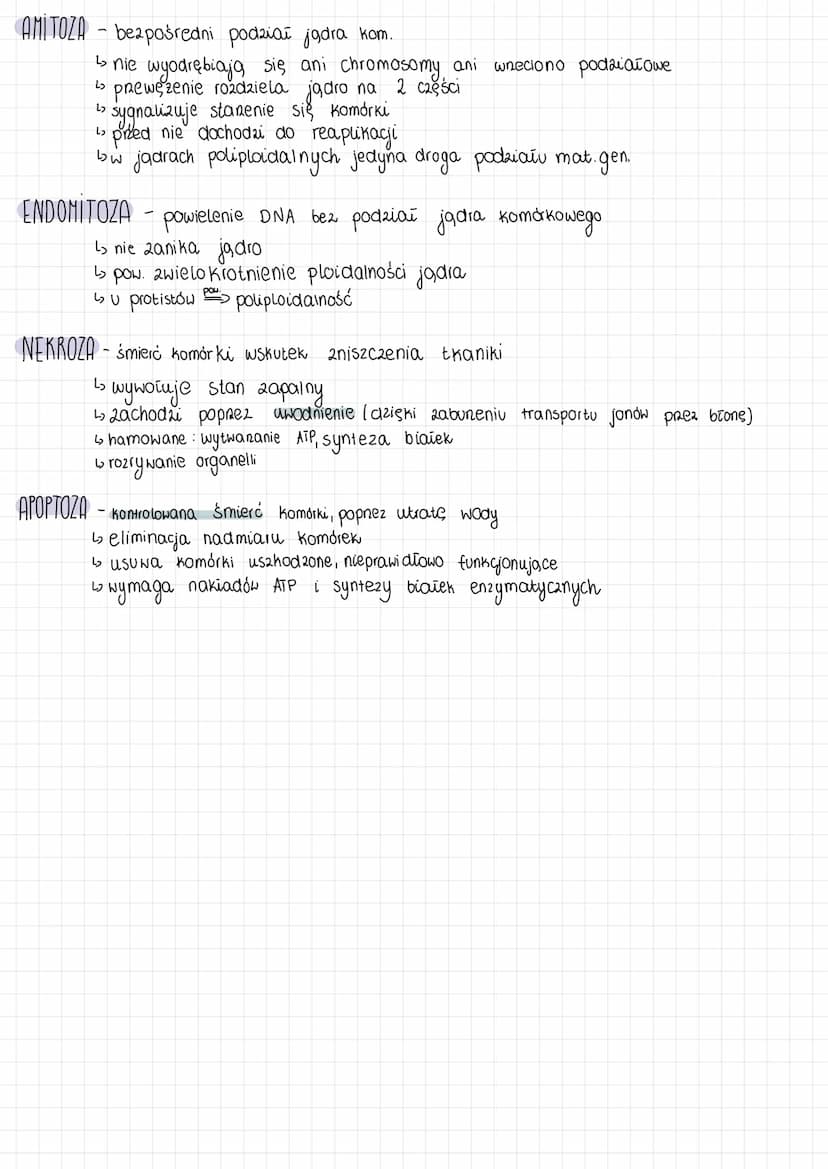 AMITOZA - bezpośredni podział jądra kom.
↳ nie wyodrębiają się ani chromosomy ani wrzeciono podziałowe
↳ przewężenie rozdziela jądro na 2 części
↳ sygnalizuje starzenie się komórki
↳ przed nie dochodzi do reaplikacji
↳ w jądrach poliploidalnych jedyna droga podziału mat. gen.
ENDOMITOZA - powielenie DNA bez podział jądra komórkowego
↳ nie zanika jądro
↳ pow. zwielokrotnienie ploidalności jądra
↳ u protistów pow. => poliploidalność
NEKROZA - śmierć komórki wskutek zniszczenia tkaniki
↳ wywołuje stan zapalny
↳ zachodzi poprzez uwodnienie (dzięki zaburzeniu transportu jonów przez błonę)
↳ hamowane: wytwarzanie ATP, synteza białek
↳ rozrywanie organelli
APOPTOZA - kontrolowana śmierć komórki, poprzez utratę wody
↳ eliminacja nadmiaru komórek
↳ usuwa komórki uszhodzone, nieprawidłowo funkcjonujące
↳ wymaga nakładów ATP i syntezy białek enzymatycznych